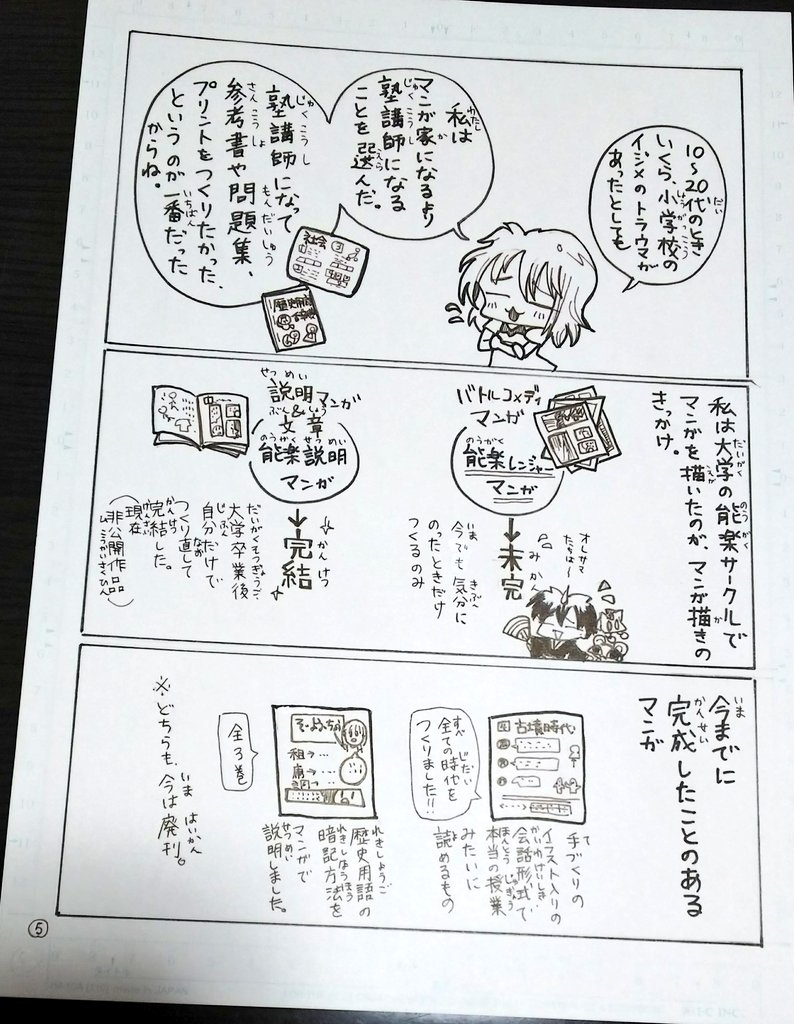 10〜20代のとき
いくら、小学校の
イジメのトラウマが
あったとしても
私は
マンガ家になるより
塾講師になる
ことを選んだ。
塾講師になって
参考書や問題集、
プリントをつくりたかった、
というのが一番だった
からね。
社会
歴史用語
私は大学の能楽サークルで
マンガを描いたのが、マンガ描きの
きっかけ。
バトルコメディ
マンガ
能楽レンジャー
マンガ
未完
オレサマ
たちは〜
今でも気分に
のったときだけ
つくるのみ
説明マンガ
&
文章
能楽説明
マンガ
完結
大学卒業後
自分だけで
つくり直して
完結した。
現在
(非公開作品)
今までに
完成したことのある
マンガ
古墳時代
全ての時代を
つくりました!!
手づくりの
イラスト入りの
会話形式で
本当の授業
みたいに
読めるもの
そ・よう・ちょう
租→…
庸→…
調→
全3巻
歴史用語の
暗記方法を
マンガで
説明しました。
※どちらも、今は廃刊。
5